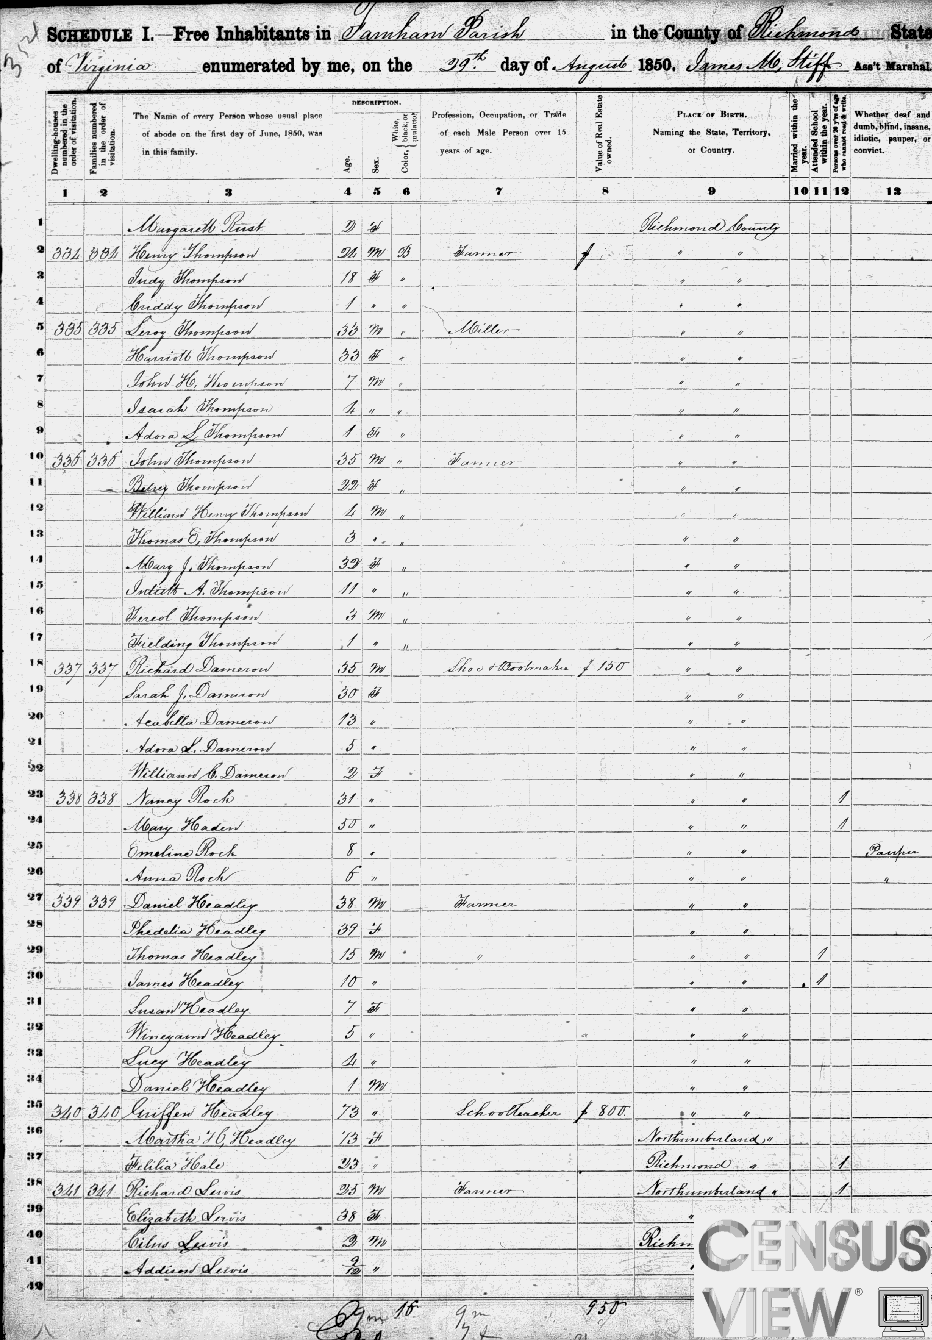 3rd
SCHEDULE I.—Free Inhabitants in Farnham Parish in the County of Richmond State
of Virginia enumerated by me, on the 29th day of August 1850. James M. Stiff Ass't Marshal.
Dwelling-houses numbered in the order of visitation.
Families numbered in the order of visitation.
The Name of every Person whose usual place of abode on the first day of June, 1850, was in this family.
DESCRIPTION.
Age.
Sex.
Color, White, black, or mulatto.
Profession, Occupation, or Trade of each Male Person over 15 years of age.
Value of Real Estate owned.
PLACE OF BIRTH. Naming the State, Territory, or Country.
Married within the year.
Attended School within the year.
Persons over 20 y'rs of age who cannot read & write.
Whether deaf and dumb, blind, insane, idiotic, pauper, or convict.
1 2 3 4 5 6 7 8 9 10 11 12 13
1 Margarett Rust 2 F Richmond County
2 334 334 Henry Thompson M B Farmer " "
3 Judy Thompson 18 F " " "
4 Criddy Thompson 1 " " " "
5 335 335 Leroy Thompson 33 M " Miller " "
6 Harriott Thompson 33 F " " "
7 John H. Thompson 7 M " " "
8 Isarah Thompson 4 " " " "
9 Adora L Thompson 1 F " " "
10 336 336 John Thompson 35 M " Farmer " "
11 Betsey Thompson 22 F " " "
12 William Henry Thompson 4 M " " "
13 Thomas C. Thompson 3 " " " "
14 Mary J. Thompson 32 F " " "
15 A. Thompson 11 " " " "
16 Thompson 3 M " " "
17 Fielding Thompson 1 " " " "
18 337 337 Richard Dameron 35 M Shoe & Bootmaker $ 150 " "
19 Sarah J. Dameron 30 F " "
20 Arabella Dameron 13 " " "
21 Adora L. Dameron 5 " " "
22 Williann C. Dameron 2 F " "
23 338 338 Nancy Rock 31 " " " 1
24 Mary Haden 50 " " " 1
25 Emeline Rock 8 " " " Pauper
26 Anna Rock 6 " " " "
27 339 339 Daniel Headley 38 M Farmer " "
28 Phedelia Headley 39 F " "
29 Thomas Headley 15 M " " " 1
30 James Headley 10 " " " 1
31 Susan Headley 7 F " "
32 Wineyann Headley 5 " " "
33 Lucy Headley 4 " " "
34 Daniel Headley 1 M " "
35 340 340 Griffen Headley 73 " School Teacher $ 800 " "
36 Martha H. Headley F Northumberland "
37 Felilia Hale 23 " Richmond " 1
38 341 341 Richard Lewis 25 M Farmer Northumberland " 1
39 Elizabeth Lewis 38 F "
40 Lewis 2 M Richm
41 Addison Lewis 9/12 "
42
950
CENSUS
VIEW®